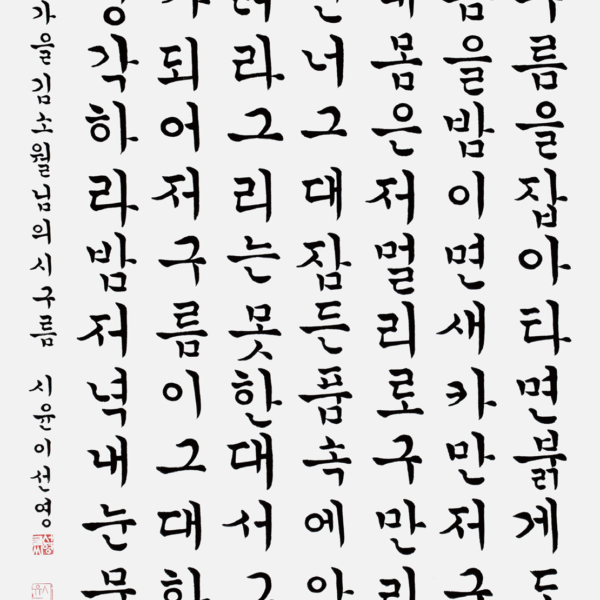 름을잡아타면붉게도
을밤이면새카만저구
몸은저멀리로구만리
너그대잠든품속에
라그리는못한대서
되어저구름이그대
각하라밤저녁내눈
가을김소월님의시구름 시윤이선영